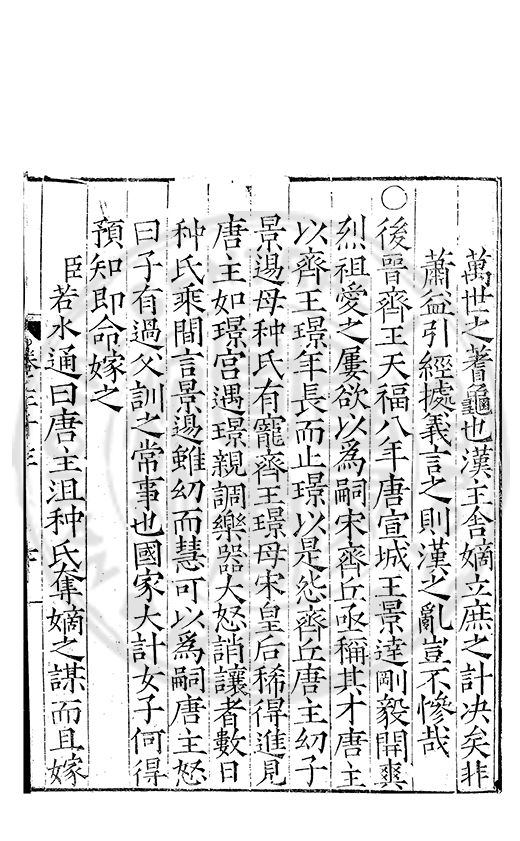 萬世之蓍龜也漢王舍嫡立庶之計决矣非
蕭益引經據義言之則漢之亂豈不慘哉
○
後晉齊王天福八年唐宣城王景達剛毅開爽
烈祖愛之屢欲以為嗣宋齊丘亟稱其才唐主
以齊王璟年長而止璟以是怨齊丘唐主幼子
景逷母种氏有寵齊王璟母宋皇后稀得進見
唐主如璟宮遇璟親調樂器大怒誚讓者數日
种氏乘間言景逷雖幼而慧可以為嗣唐主怒
曰子有過父訓之常事也國家大計女子何得
預知即命嫁之
臣若水通曰唐主沮种氏奪嫡之謀而且嫁